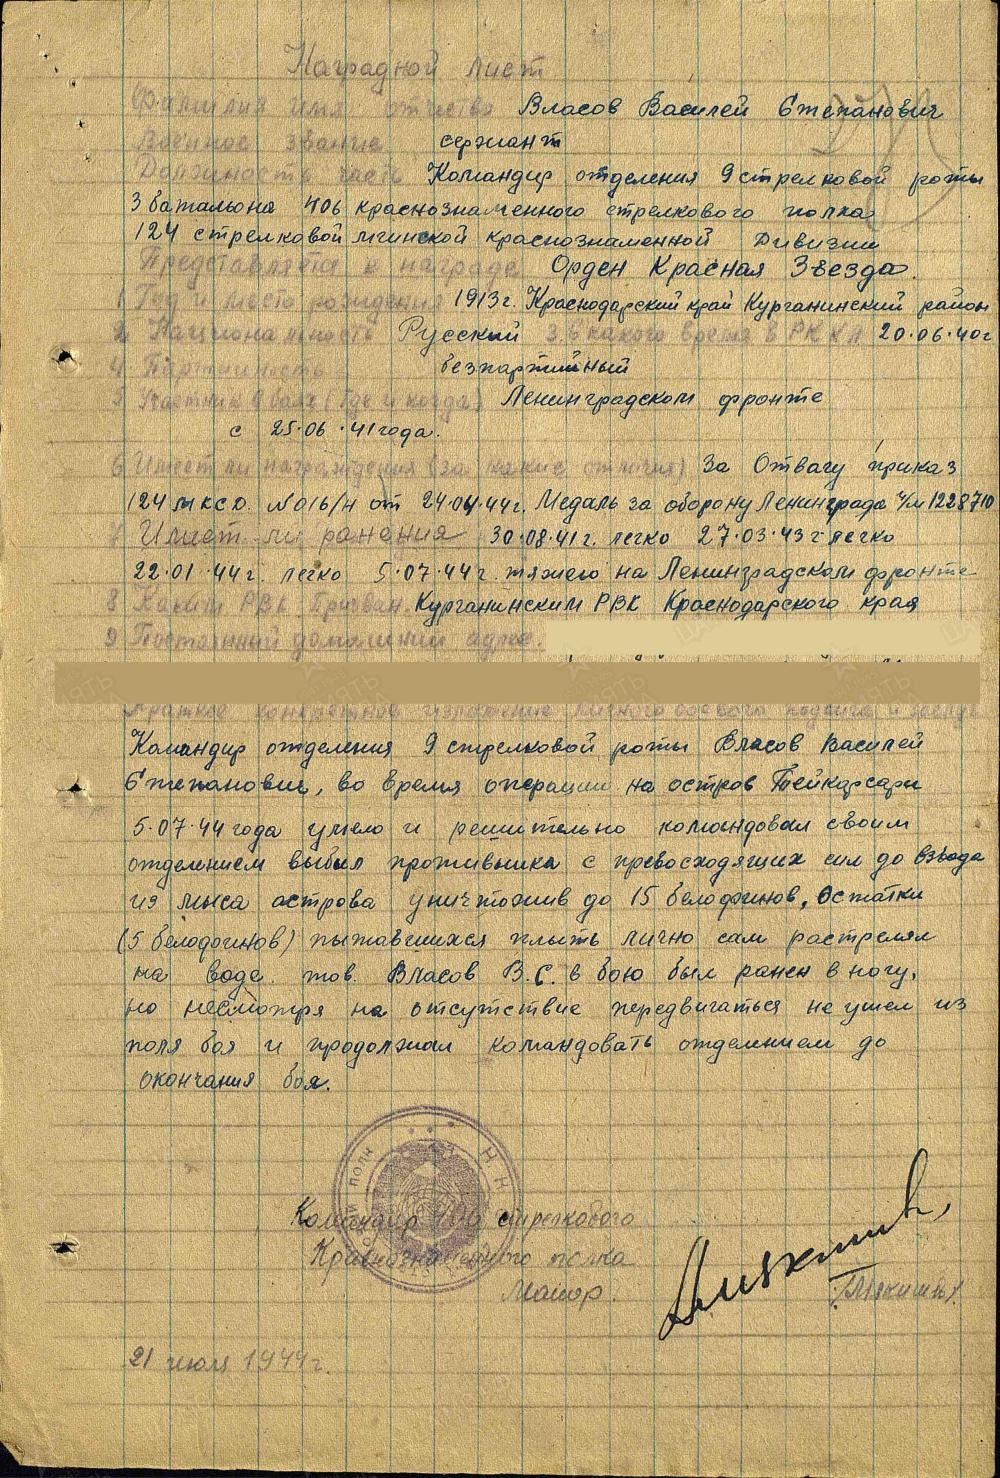 Наградной лист
Фамилия имя отчество Власов Василей Степанович
Военное звание сержант
Должность часть Командир отделения 9 стрелковой роты
3 батальона 406 краснознаменного стрелкового полка
124 стрелковой мгинской краснознаменной Дивизии
Представляется к награде Орден Красная Звезда.
1 Год и место рождения 1913 г. Краснодарский край Курганинский район
2 Национальность Русский 3. С какого время в РККА 20.06.40 г
4 Партийность безпартийный
5 Участник в боях (Где и когда) Ленинградском фронте
с 25.06.41 года.
6 Имеет ли награждения (за какие отличия) За Отвагу приказ
124 мксд. №016/н от 24.04.44 г. Медаль за оборону Ленинграда 1228710
7 Имеет-ли ранения 30.08.41 г. легко 27.03.43 г легко
22.01.44 г. легко 5.07.44 г. тяжело на Ленинградском фронте
8 Каким РВК Призван. Курганинским РВК Краснодарского края
9 Постоянный домашний адрес.
Краткое конкретное изложение личного боевого подвига и
Командир отделения 9 стрелковой роты Власов Василей
Степанович, во время операции на остров Тейкарсари
5.07.44 года умело и решительно командовал своим
отделением выбил противника с превосходящих сил до взвода
из мыса острова уничтожив до 15 белофинов, Остатки
(5 белофинов) пытавшихся плыть лично сам растрелял
на воде. тов. Власов В.С. в бою был ранен в ногу,
но несмотря на отсутствие передвигаться не ушел из
поля боя и продолжал командовать отделением до
окончания боя.
Командир 406 стрелкового
Краснознаменного полка
Майор. /Мякишев/
21 июля 1944 г.